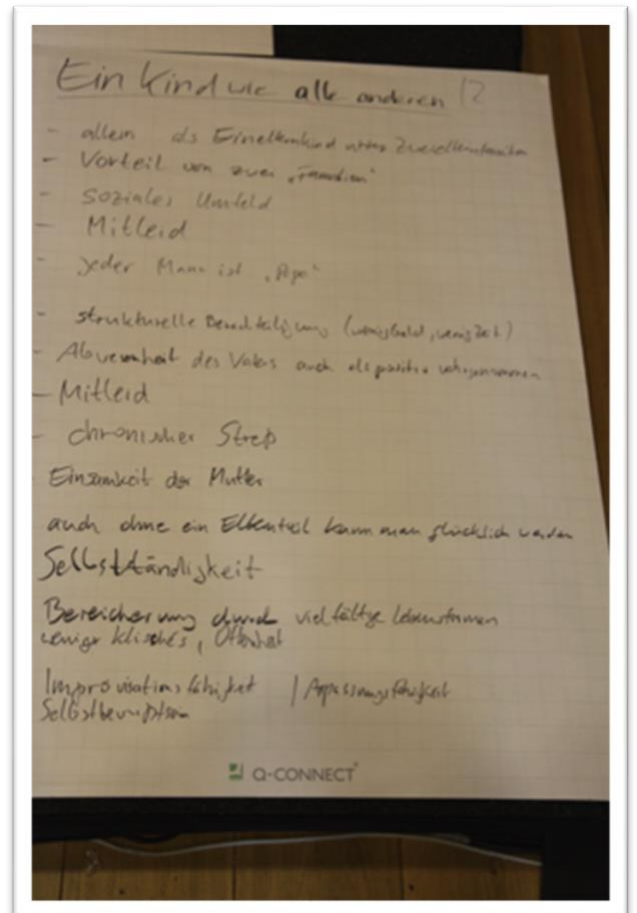 Ein Kind wie alle anderen
- allein als Einelternkind unter Zweielternfamilien
- Vorteil von zwei „Familien“
- soziales Umfeld
- Mitleid
- jeder Mann ist „Papa“
- strukturelle Benachteiligung (wenig Geld, wenig Zeit)
- Abwesenheit des Vaters auch als positiv wahrgenommen
- Mitleid
- chronischer Streß
Einsamkeit der Mutter
auch ohne ein Elternteil kann man glücklich werden
Selbstständigkeit
Bereicherung durch vielfältige Lebensformen
weniger Klischés, Offenheit
Improvisationsfähigkeit | Anpassungsfähigkeit
Selbstbewußtsein
Q-CONNECT